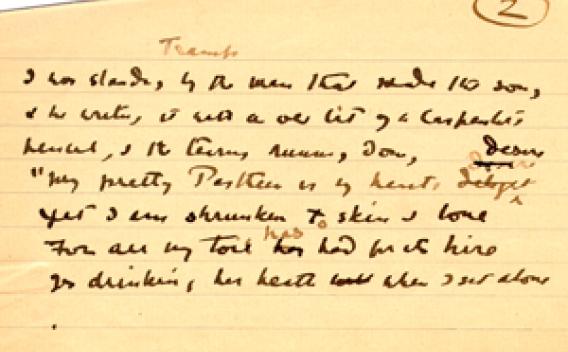 2
Tramp
I was standing by the man that made the song,
& he writing it with an old bit of a Carpenters
pencil, & the tears running down, Desire
"My pretty Pastheen is my hearts
Yet I am shrunken to skin & bone
For all my toil has had for its hire
drinking her health when I sit alone